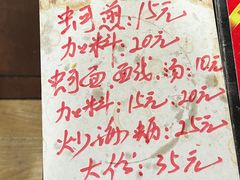 蚵煎:15元
加料:20元
蚵面 面线:汤:10元
加料:15元 20元
炒 粿:25元
大份:35元